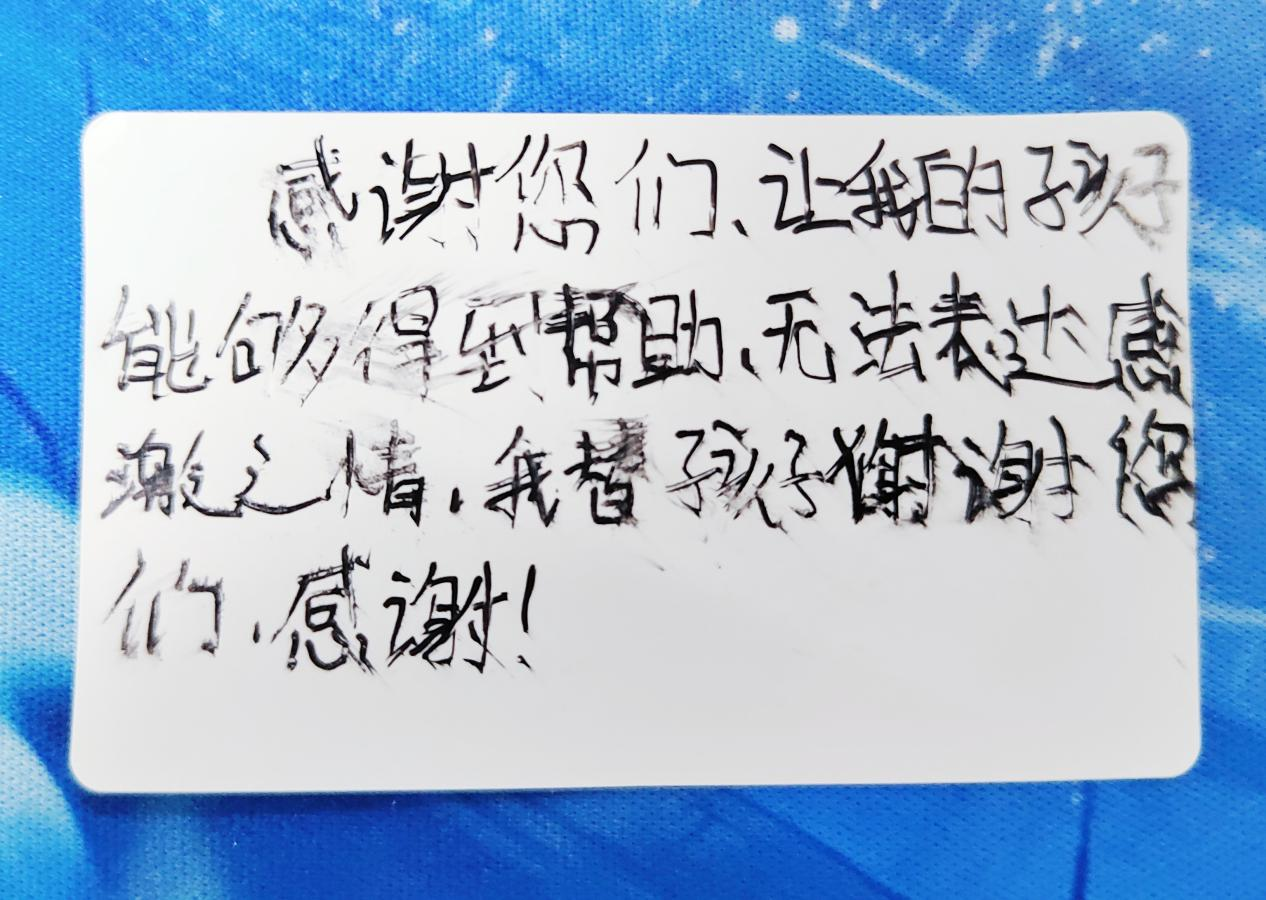 感谢您们、让我的孩子
能够得到帮助、无法表达感
激之情,我替孩子谢谢您
们,感谢!